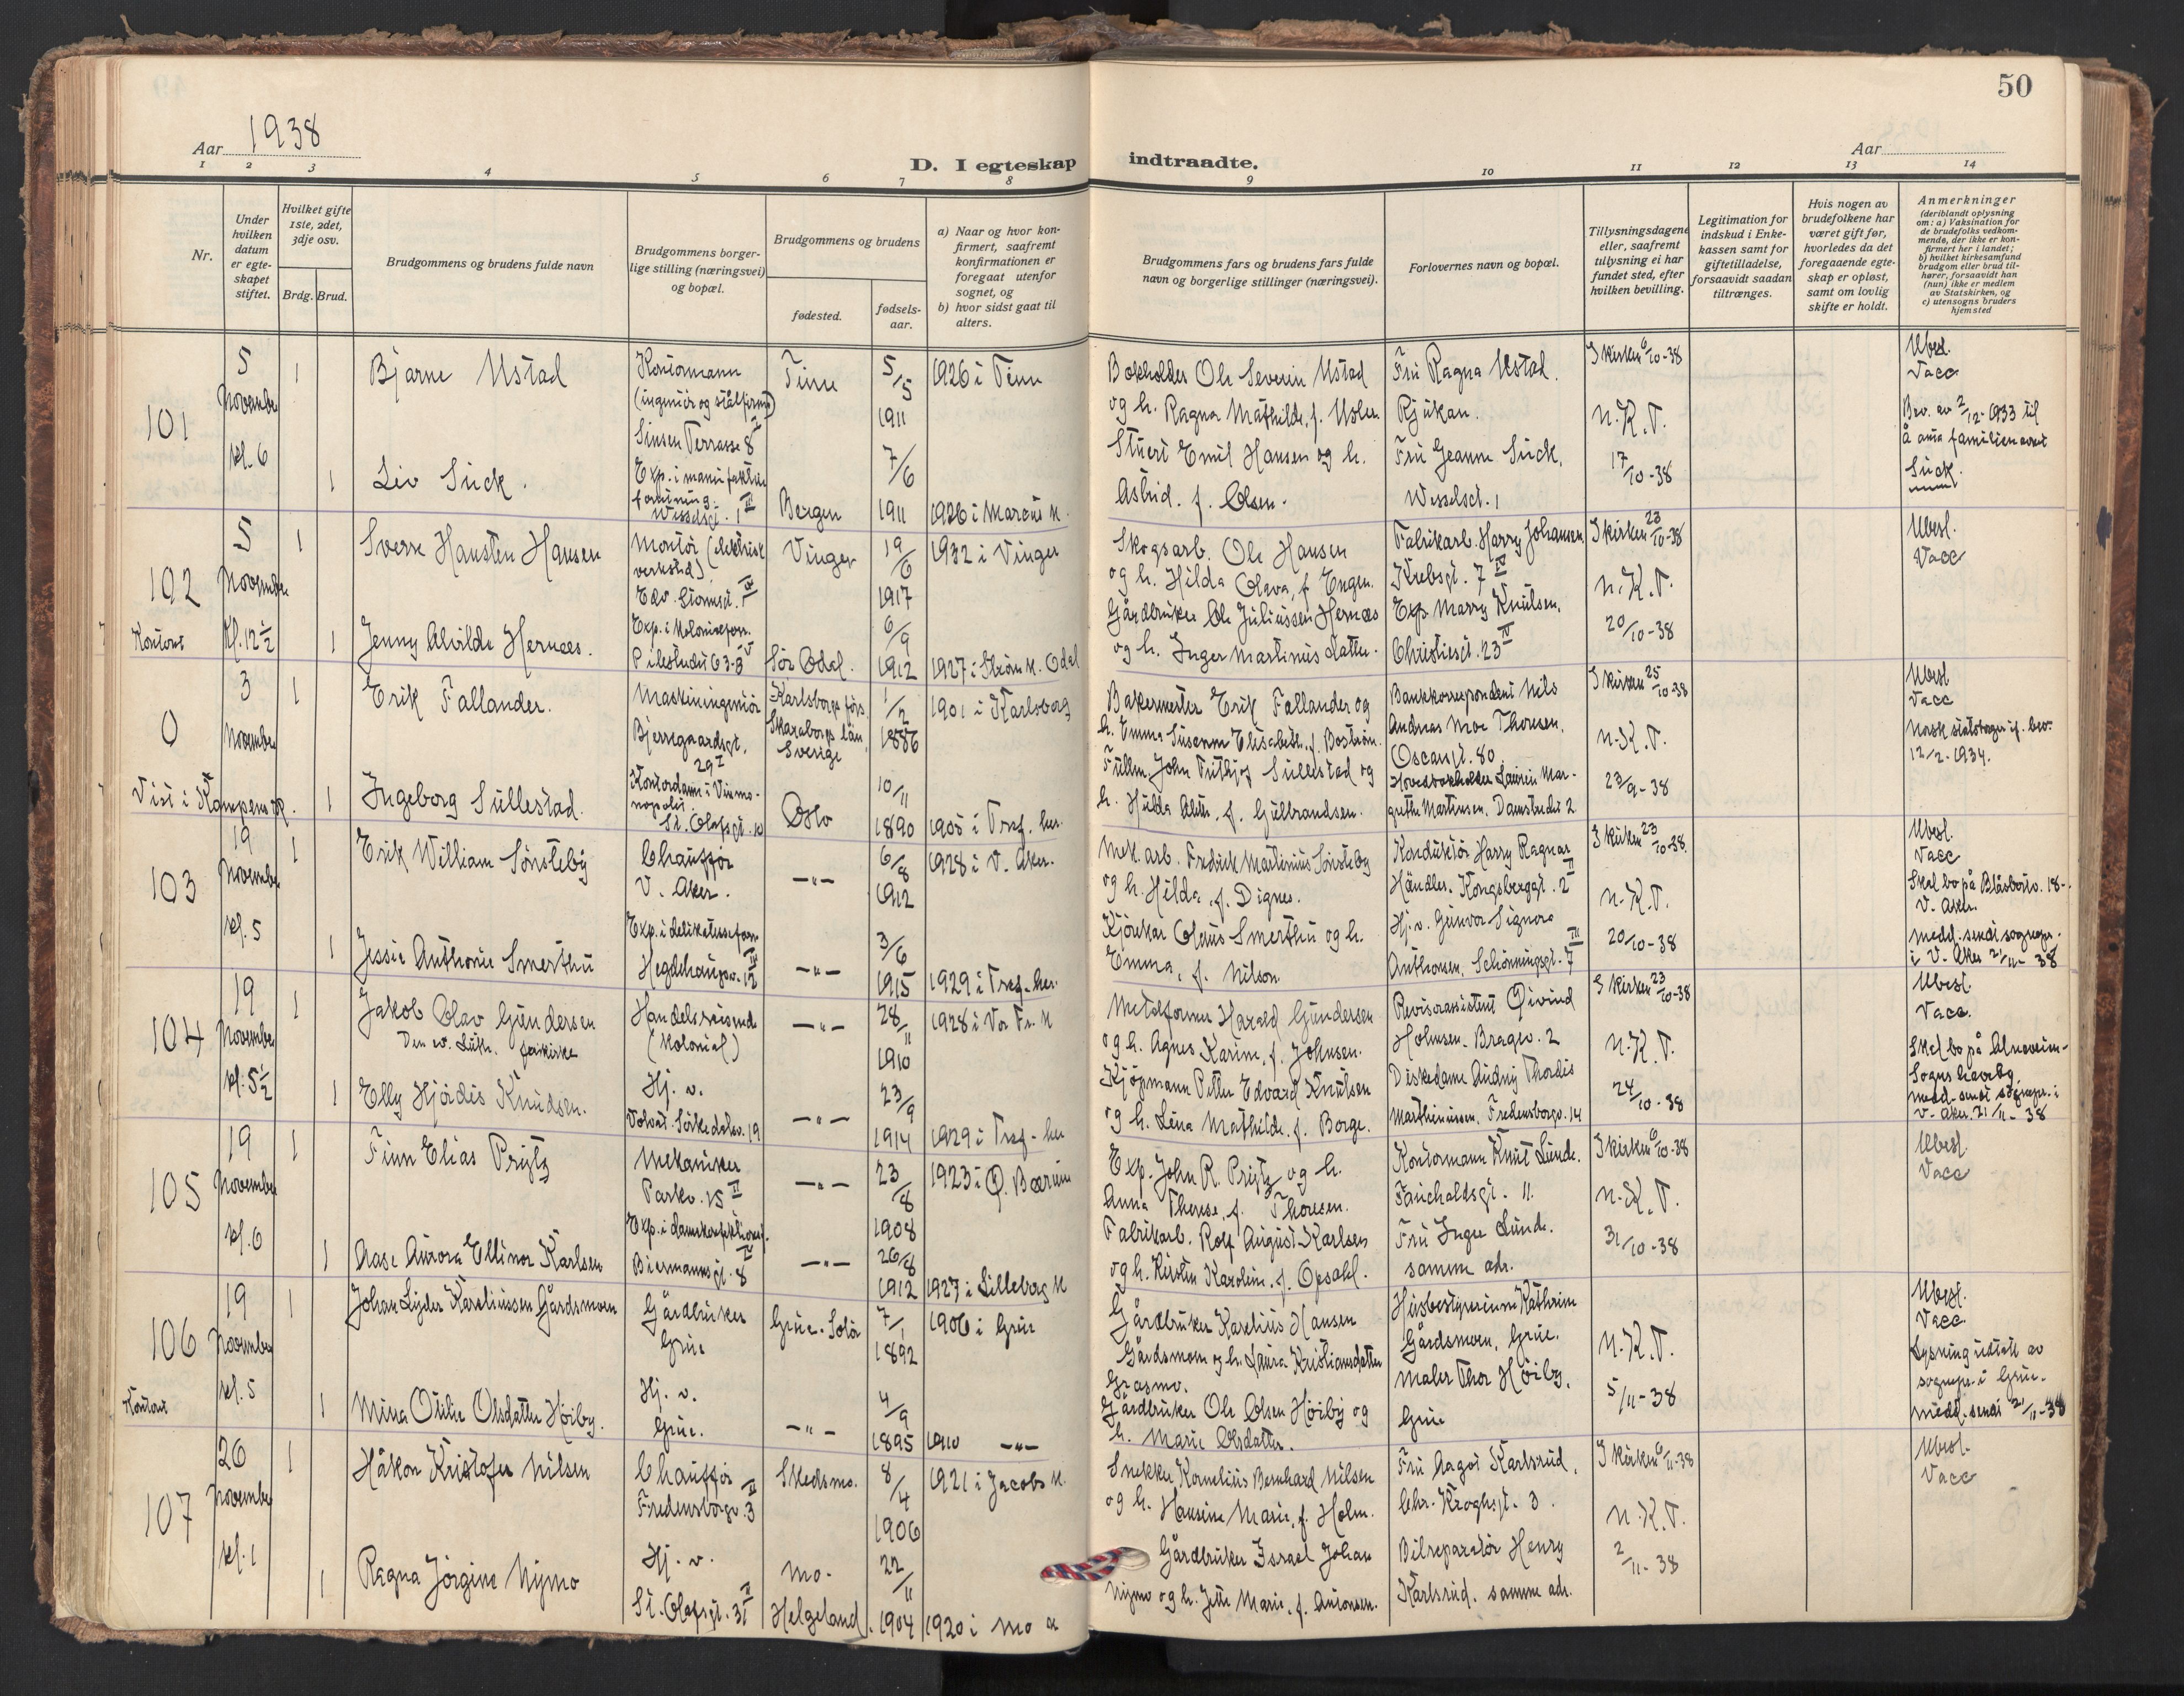 50
Aar 1938
Aar
D. I egteskap indtraadte.
1 2 3 4 5 6 7 8 9 10 11 12 13 14
Nr.
Under hvilken datum er egte-skapet stiftet.
Hvilket gifte 1ste, 2det, 3dje osv.
Brdg. Brud.
Brudgommens og brudens fulde navn
Brudgommens borger-lige stilling (næringsvei) og bopæl.
Brudgommens og brudens
fødested.
fødsels-aar.
a) Naar og hvor kon-firmert, saafremt konfirmationen er foregaat utenfor sognet, og
b) hvor sidst gaat til alters.
Brudgommens fars og brudens fars fulde navn og borgerlige stillinger (næringsvei).
Forlovernes navn og bopæl.
Tillysningsdagene eller, saafremt tillysning ei har fundet sted, efter hvilken bevilling.
Legitimation for indskud i Enke-kassen samt for giftetilladelse, forsaavidt saadan tiltrænges.
Hvis nogen av brudefolkene har været gift før, hvorledes da det foregaaende egte-skap er opløst, samt om lovlig skifte er holdt.
Anmerkninger
(deriblandt oplysning om: a) Vaksination for de brudefolks vedkom-mende, der ikke er kon-firmert her i landet; b) hvilket kirkesamfund brudgom eller brud til-hører, forsaavidt han (hun) ikke er medlem av Statskirken, og c) utensogns bruders hjemsted
101
5 November kl. 6
1 Bjarne Ustad
Kontormann (ingeniør og stålfirma) Sinsen Terrasse 8 II
Tinn
5/5 1911
1926 i Tinn
Bokholder Ole Severin Ustad og h. Ragna Mathilde, f. Usler.
Fru Ragna Ustad. Rjukan.
I kirken 6/10-38
N.K.T.
17/10-38
Ubesl. Vacc
Bev. av 2/12-1933 til å anta familienavnet Suck.
1 Liv Suck.
Exp. i manufaktur forretning. Wesselsgt. 1 III
Bergen
7/6 1911
1926 i Marcus K.
Stuert Emil Hansen og h. Astrid. f. Olsen.
Fru Jeanne Suck, Wesselsgt. 1
102
Kontoret
5 November kl. 12 1/2
1 Sverre Hansten Hansen
Montør (elektrisk verksted). Edv. Stormsgt. 1 IV
Vinger
19/6 1917
1932 i Vinger
Skogsarb. Ole Hansen og h. Hilda Olava, f. Engen.
Fabrikarb. Harry Johansen. Krebsgt. 7 IV
I kirken 23/10-38
N.K.T.
20/10-38
Ubesl. Vacc
1 Jenny Alvilde Hernæs.
Exp. i kolonialforr. Pilestredet 63 B V
Sør Odal.
6/9 1912
1927 i Strøm K. Odal
Gårdbruker Ole Juliussen Hernæs og h. Inger Martinusdatter.
Exp. Marry Knutsen. Christiesgt. 23 IV
0
Viet i Kampens K.
3 November
1 Erik Fallander.
Maskiningeniør Bjerregaardsgt. 29 I
Karlsborgs förs. Skaraborgs län Sverige
1/2 1886
1901 i Karlsborg
Bakermester Erik Fallander og h. Emma Susanna Elisabeth, f. Boström.
Bankkorrespondent Nils Andreas Moe Thoresen, Oscarsgt. 80
I kirken 25/10-38
N.K.T.
23/9-38
Ubesl Vacc
Norsk statsborger if. bev. 12/2-1934.
1 Ingeborg Sullestad.
Kontordame i Vinmo-nopolet. St. Olafsgt. 10
Oslo
10/11 1890
1905 i Tref. her.
Fullm. John Fritjof Sullestad og h. Hulda Alette, f. Gulbrandsen.
Hovedbokholder Laurin Mar-grethe Martinsen, Damstredet 2
103
19 November kl. 5
1 Erik William Sønsteby
Chauffør V. Aker.
-"-
6/8 1912
1928 i V. Aker.
Mek. arb. Fredrik Martinius Sønsteby og h. Hilda, f. Dignes.
Konduktør Harry Ragnar Händler. Kongsberggt. 2 II
I kirken 23/10-38.
N.K.T.
20/10-38
Ubesl. Vacc
Skal bo på Blåsbortv. 18 - V. Aker. Medd. sendt sognepr. i V. Aker 21/11-38
1 Jessie Anthonie Smerthu
Exp. i delikatesseforr. Hegdehaugsv. 12 III
-"-
3/6 1915
1929 i Tref. her.
Kjørekar Olaus Smerthu og h. Emma, f. Nilson.
Hj. v. Gunvor Signora Anthonsen. Schönningsgt. 7 III
104
19 November kl. 5 1/2
1 Jakob Olav Gundersen
Den ev. Luth. frikirke
Handelsreisende (kolonial)
-"-
28/11 1910
1928 i Vor Fr. K
Metalformer Harald Gundersen og h. Agnes Karine, f. Johnsen.
Revisorassistent Øivind Holmsen. Bragev. 2
I kirken 23/10-38
N.K.T.
24/10-38
Ubesl. Vacc.
Skal bo på Alnaveien - Sogns haveby, medd. sendt sognepr. i V. Aker. 21/11-38
1 Elly Hjørdis Knudsen.
Hj. v. Volvat. Sørkedalsv. 19
-"-
23/9 1914
1929 i Tref. her
Kjøpmann Petter Edvard Knutsen og h. Lena Mathilde, f. Borge.
Diskedame Audny Thordis Marthinussen, Fredensborgv. 14
105
19 November kl. 6
1 Finn Elias Prytz
Mekaniker Parkv. 15 II
-"-
23/8 1908
1923 i Ø. Bærum
Exp. John R. Prytz og h. Anna Therese, f. Thoresen.
Kontormann Knut Lunde. Fauchaldsgt. 11.
I kirken 6/10-38
N.K.T.
31/10-38
Ubesl. Vacc
1 Aase Aurora Ellinor Karlsen
Exp. i damekonfektionsf. Biermannsgt. 8 IV
-"-
26/8 1912
1927 i Lilleborg K
Fabrikarb. Rolf August Karlsen og h. Kirstin Karoline, f. Opsahl.
Fru Inger Lunde. samme adr.
106
Kontoret
19 November kl. 5
1 Johan Lyder Kareliussen Gårdsmoen
Gårdbruker Grue
Grue. Solør
7/1 1892
1906 i Grue
Gårdbruker Karelius Hansen Gårdsmoen og h. Laura Kristiansdatter Grasmo.
Husbestyrerinne Kathrine Gårdsmoen, Grue.
N.K.T.
5/11-38
Ubesl. Vacc.
Lysning utstett av sognepr. i Grue. Medd. sendt 21/11-38
1 Mina Otilie Olsdatter Høiby.
Hj. v. Grue.
-"-
4/9 1895
1910 -"-
Gårdbruker Ole Olsen Høiby og h. Marie Olsdatter.
Maler Thor Høiby, Grue
107
26 November kl. 1
1 Håkon Kristofer Nilsen
Chauffør Fredensborgv. 3 II
Skedsmo.
8/4 1906
1921 i Jacobs K.
Snekker Kornelius Bernhard Nilsen og h. Hansine Marie, f. Holm.
Fru Aagot Karlsrud, Chr. Kroghsgt. 3.
I kirken 6/11-38
N.K.T.
2/11-38
Ubesl. Vacc
1 Ragna Jørgine Nymo
Hj. v. St. Olafsgt. 31 II
Mo. Helgeland.
22/11 1904
1920 i Mo K
Gårdbruker Israel Johan Nymo og h. Jette Marie, f. Antonsen.
Bilreparatør Henry Karlsrud. samme adr.